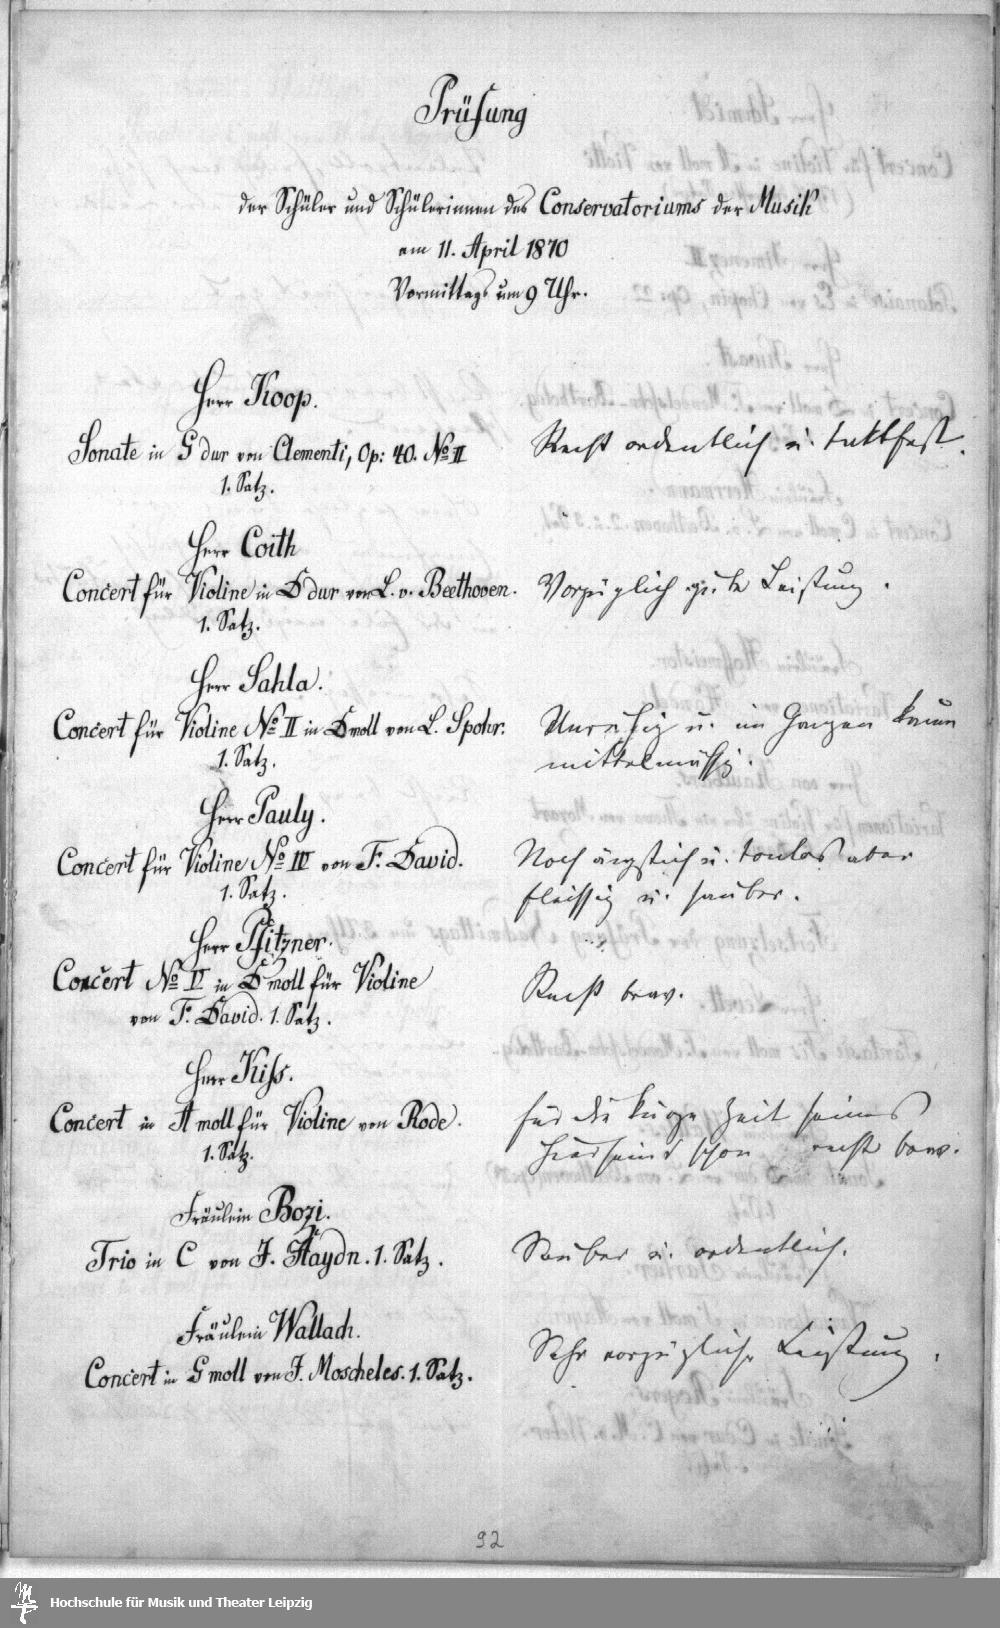 Prüfung
der Schüler und Schülerinnen des Conservatoriums der Musik
am 11. April 1870
Vormittags um 9 Uhr.
Herr Koop.
Sonate in G dur von Clementi, Op: 40. No II
1. Satz.
Recht ordentlich u. taktfest.
Herr Coith
Concert für Violine in D dur von L. v. Beethoven.
1. Satz.
Vorzüglich gute Leistung.
Herr Sahla.
Concert für Violine No II in D moll von L. Spohr.
1. Satz.
Unruhig u. im Ganzen kaum
mittelmässig.
Herr Pauly.
Concert für Violine No IV von F. David.
1. Satz.
Noch ängstlich u. tonlos aber
fleissig u. sauber.
Herr Pfitzner.
Concert No IV in D moll für Violine
von F. David. 1. Satz.
Recht brav.
Herr Kiss.
Concert in A moll für Violine von Rode.
1. Satz.
für die kurze Zeit seines
Hierseins schon recht brav.
Fräulein Bozi.
Trio in C von J. Haydn. 1. Satz.
Sauber u. ordentlich.
Fräulein Wallach.
Concert in G moll von J. Moscheles. 1. Satz.
Sehr vorzügliche Leistung.
92
Hochschule für Musik und Theater Leipzig